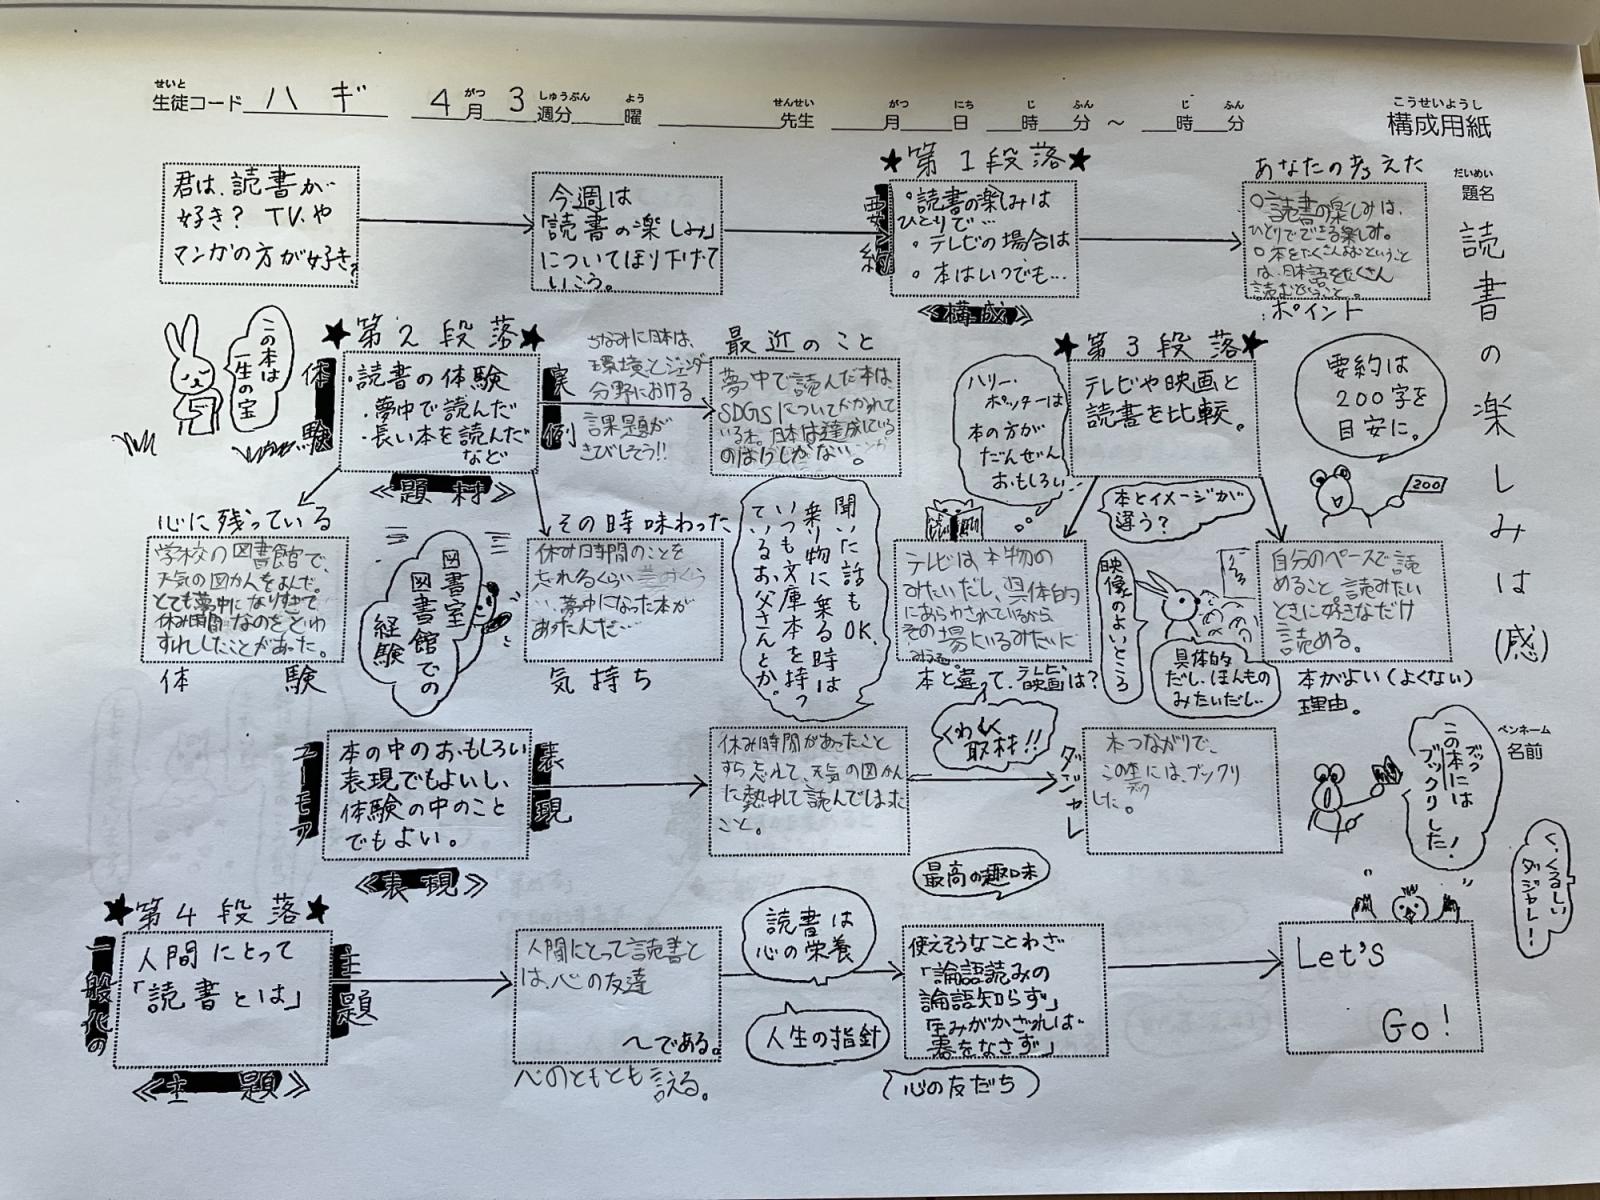 せいと
生徒コード ハギ 4月 3週分 曜 先生 月 日 時 分 ～ 時 分
がつ しゅうぶん よう せんせい がつ にち じ ふん じ ふん
こうせいようし
構成用紙
だいめい
題名
読書の楽しみは(感)
ペンネーム
名前
君は、読書が
好き? TV.や
マンガの方が好き?
今週は
「読書の楽しみ」
についてほり下げて
いこう。
★第1段落★
要約
○読書の楽しみは
ひとりで…
○テレビの場合は
○本はいつでも…
≪構成≫
あなたの考えた
○読書の楽しみは、
ひとりでできる楽しみ。
○本をたくさんよむということ
は、日本語をたくさん
読むということ。
:ポイント
この本は
一生の宝
★第2段落★
体験
・読書の体験
・夢中で読んだ
・長い本を読んだ
など
≪題材≫
実例
ちなみに日本は、
環境とジェンダー
分野における
課題が
きびしそう!!
最近のこと
夢中で読んだ本は、
SDGSについてかかれて
いるよ。日本は達成している
のは しかない。
★第3段落★
テレビや映画と
読書を比較。
ハリー・
ポッターは
本の方が
だんぜん
おもしろい
要約は
200字を
目安に。
200
心に残っている
学校の図書館で、
天気の図かんをよんだ。
とても夢中になりすぎて
休み時間なのをとわ
すれしたことがあった。
体験
図書室
図書館での
経験
その時味わった
休み時間のことを
忘れるくらい
夢中になった本が
あったんだ…
気持ち
聞いた話もOK.
乗り物に乗る時は
いつも文庫本を持っ
ているお父さんとか。
テレビは本物の
みたいだし、具体的
にあらわされているから
その場にいるみたいに
みえる。
本と違って、映画は?
本とイメージが
違う?
映像のよいところ
具体的
だし、ほんもの
みたいだし…
自分のペースで読
めること。読みたい
ときに好きなだけ
読める。
本がよい(よくない)
理由。
ユーモア
本の中のおもしろい
表現でもよいし、
体験の中のこと
でもよい。
≪表現≫
表現
休み時間があったこと
すら忘れて、天気の図かん
に熱中して読んでしまった
こと。
くわしく
取材!!
ダジャレ
本つながりで、
この本には、ブックリ
ブック
した。
ブック
この本には
ブックリした!
く、くるしい
ダジャレ!
★第4段落★
一般化の
人間にとって
「読書とは」
≪主題≫
主題
人間にとって読書と
は、心の友達
～である。
心のともとも言える。
読書は
心の栄養
人生の指針
最高の趣味
使えそうなことわざ
「論語読みの
論語知らず」
玉みがかざれば
器をなさず」
(心の友だち)
Let's
Go!